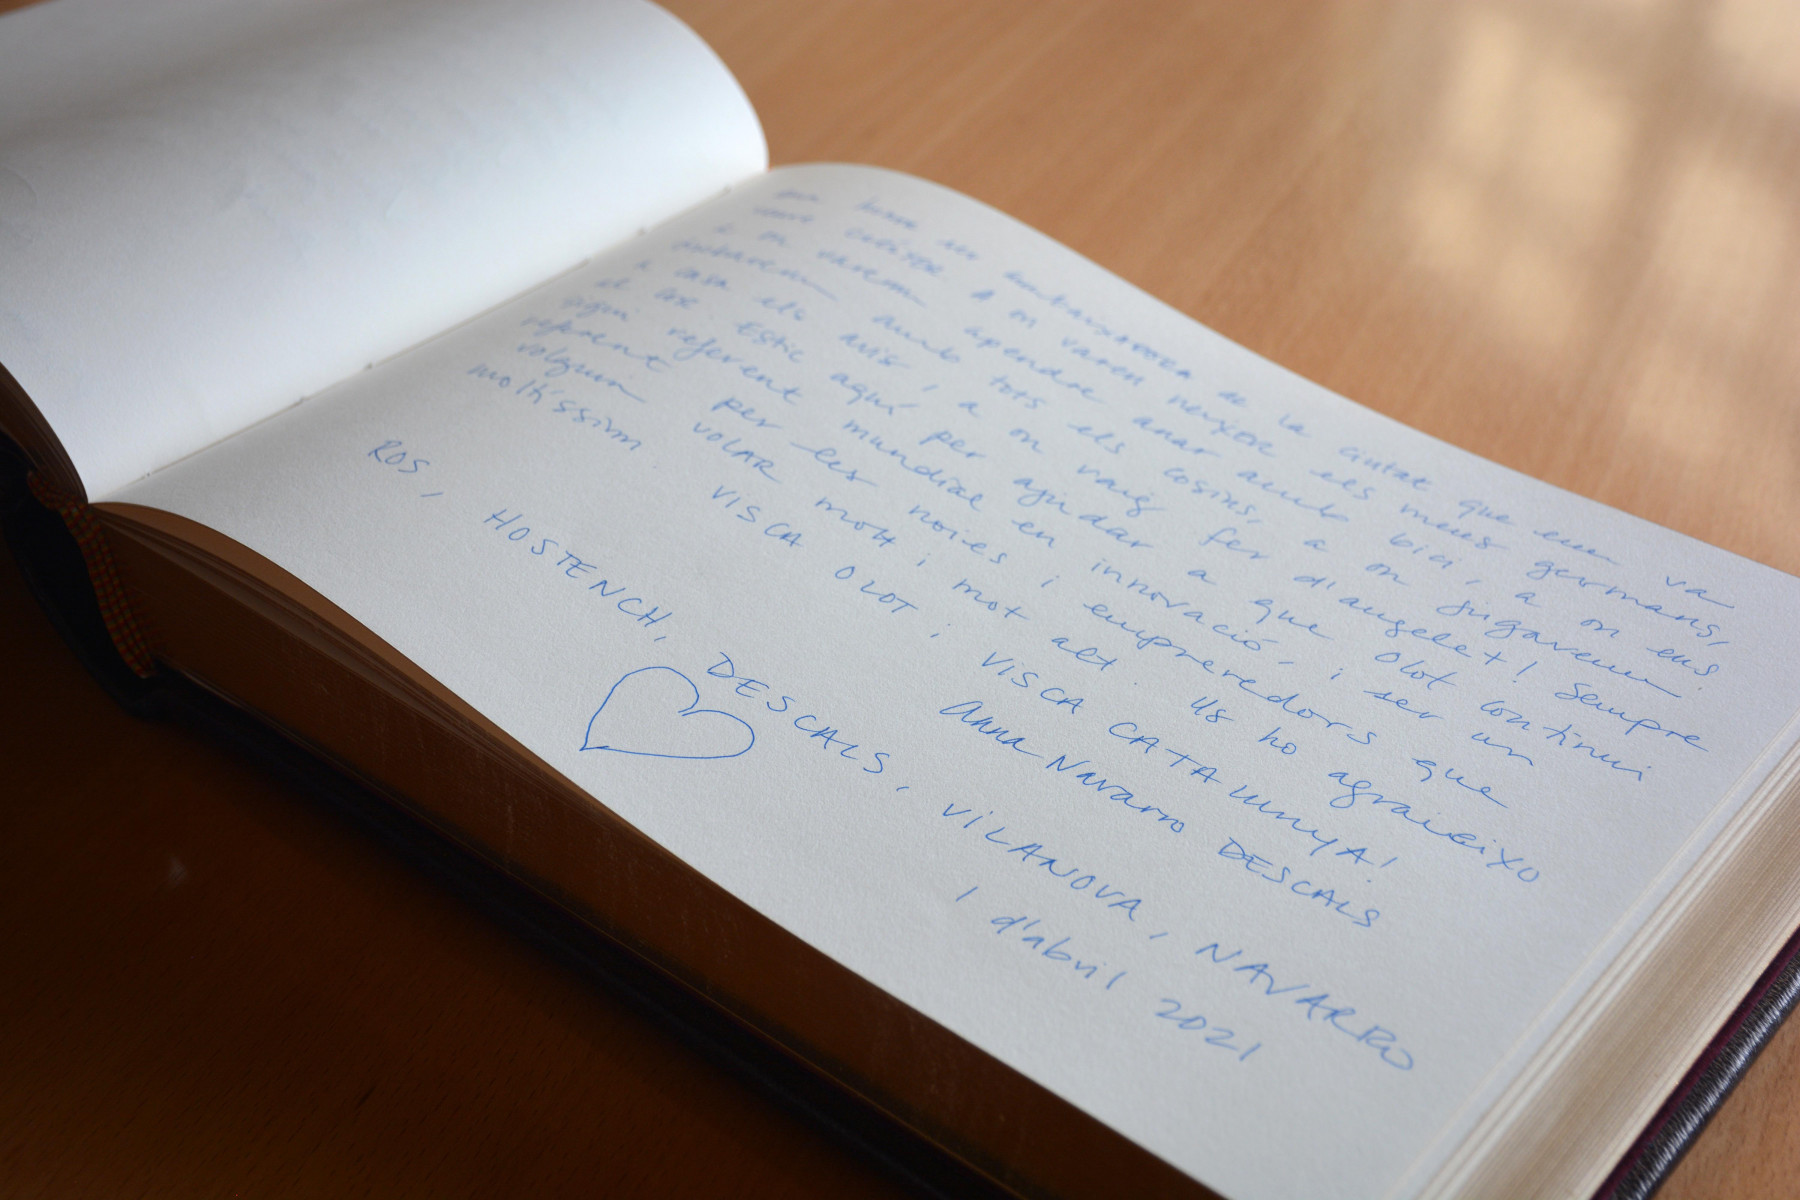 ambaixadora de la ciutat que em va
veure créixer a on varen neixer els meus germans,
i on varem apendre anar amb bici, a on ens
amb tots els cosins, a on jugavem
a casa els avis, a on vaig fer d'angelet! Sempre
al cor Estic aquí per ajudar a que Olot continui
sigui referent mundial en innovació, i ser un
repent per les noies i emprenedors que
volguin VOLAR molt i mot alt. Us ho agraieixo
moltíssim. VISCA OLOT i VISCA CATALUNYA!
Anna Navarro DESCALS
ROS, HOSTENCH, DESCALS, VILANOVA, NAVARRO
1 d'abril 2021